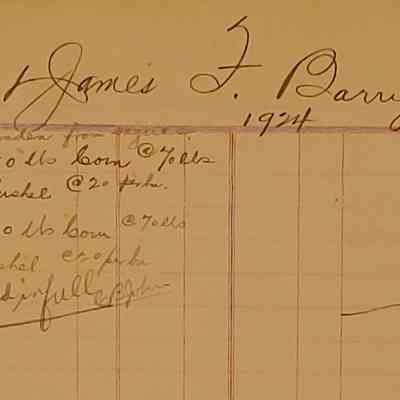 James F. Barry
1924
from
0 lbs Corn @ 70 lbs
ushel @ 20 per bu.
0 lbs Corn @ 70 lbs
shel @ 20 per bu
d in full